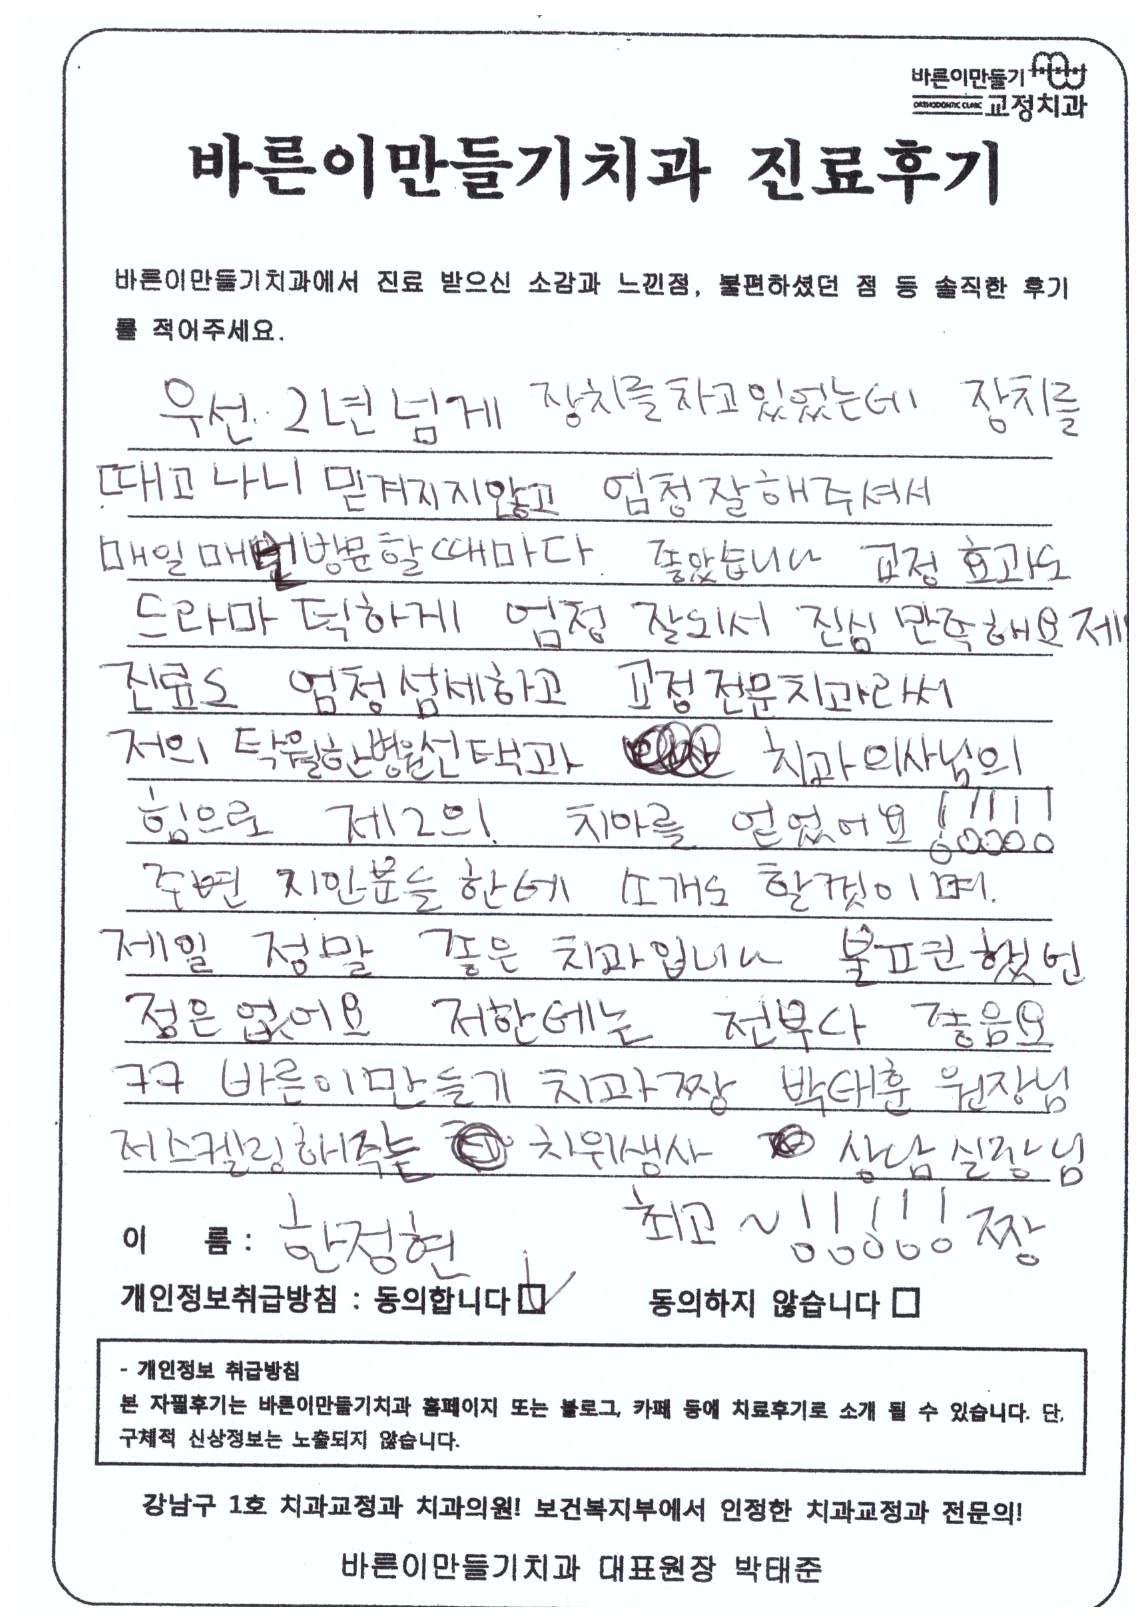 바른이만들기
ORTHODONTIC CLINIC 교정치과
바른이만들기치과 진료후기
바른이만들기치과에서 진료 받으신 소감과 느낀점, 불편하셨던 점 등 솔직한 후기
를 적어주세요.
우선 2년 넘게 장치를 차고있었는데 장치를
때고 나니 믿겨지지않고 엄청 잘해주셔서
매일 매번 방문할 때마다 좋았습니다 교정 효과도
드라마틱하게 엄청 잘되서 진심 만족해요 제
진료도 엄청 섬세하고 교정전문치과라써
저의 탁월한병원선택과 치과의사님의
힘으로 제2의 치아를 얻었어요!!!!!
주변 지인분들한테 소개도 할껏이며.
제일 정말 좋은 치과입니다 불표권했던
점은 없어요 저한테는 전부다 좋음요
ㅋㅋ 바른이만들기 치과 짱 박태훈 원장님
저스켈링해주는 치위생사 상담실장님
이 름 : 한정현 최고 ~!!!!!! 짱
개인정보취급방침 : 동의합니다 동의하지 않습니다
- 개인정보 취급방침
본 자필후기는 바른이만들기치과 홈페이지 또는 블로그, 카페 등에 치료후기로 소개 될 수 있습니다. 단,
구체적 신상정보는 노출되지 않습니다.
강남구 1호 치과교정과 치과의원! 보건복지부에서 인정한 치과교정과 전문의!
바른이만들기치과 대표원장 박태준